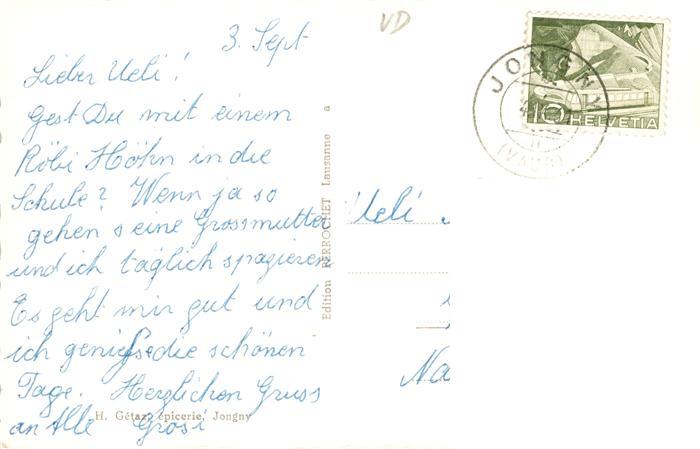 VD
3. Sept
Lieber Ueli!
Gest Du mit einem
Röbi Höhn in die
Schule? Wenn ja so
gehen seine Grossmutter
und ich täglich spazieren
Es geht mir gut und
ich geniesse die schönen
Tage. Herzlichen Gruss
an Alle Grosi
H. Gétaz, épicerie, Jongny
Edition PERROCHET Lausanne a
JONGNY
(VAUD)
10 HELVETIA
Ueli
Na